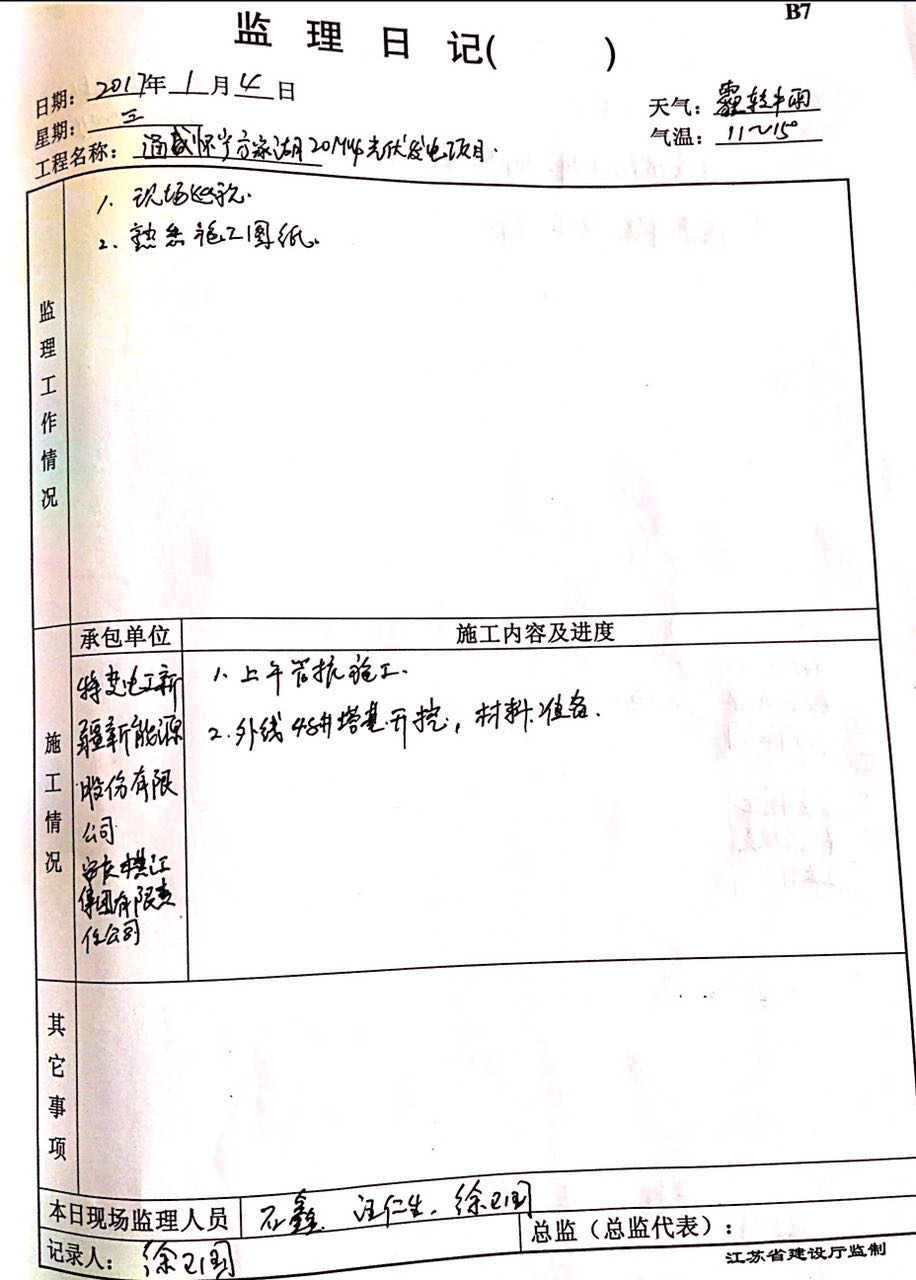 B7
监理日记( )
日期: 2017年1月4日
天气: 霾转中雨
星期: 三
气温: 11~15°
工程名称: 通威怀宁方家湖20MW光伏发电项目.
监理工作情况
1. 现场巡视.
2. 熟悉施工图纸.
施工情况
承包单位
施工内容及进度
特变电工新
疆新能源
股份有限
公司
集团有限责
任公司
1. 上午 施工.
2. 外线4#塔基开挖, 材料准备.
其它事项
本日现场监理人员
石鑫. 汪仁生. 徐卫国
总监(总监代表):
记录人: 徐卫国
江苏省建设厅监制